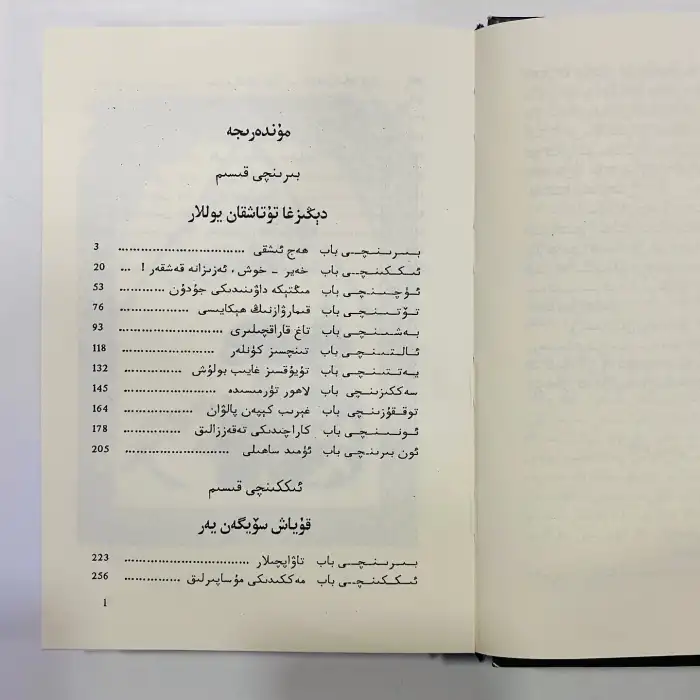 مۇندەرىجە
بىرىنچى قىسىم
دېڭىزغا تۇتاشقان يوللار
بىرىنچى باب ھەج ئىشقى ............................... 3
ئىككىنچى باب خەير - خوش، ئەزىزانە قەشقەر! ... 20
ئۈچىنچى باب مىڭتېكە داۋىنىدىكى جۇدۇن ........... 53
تۆتىنچى باب قىمارۋازنىڭ ھېكايىسى ................. 76
بەشىنچى باب تاغ قاراقچىلىرى .......................... 93
ئالتىنچى باب تىنچسىز كۈنلەر ....................... 118
يەتتىنچى باب تۇيۇقسىز غايىب بولۇش .............. 132
سەككىزىنچى باب لاھور تۈرمىسىدە ....................... 145
توققۇزىنچى باب غېرىب كېپەن پالۋان .............. 164
ئونىنچى باب كاراچىدىكى تەقەززالىق ............... 178
ئون بىرىنچى باب ئۈمىد ساھىلى .......................... 205
ئىككىنچى قىسىم
قۇياش سۆيگەن يەر
بىرىنچى باب تاۋاپچىلار ............................... 223
ئىككىنچى باب مەككىدىكى مۇساپىرلىق ............... 256
1